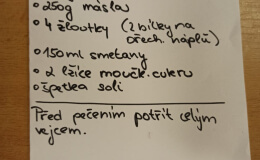 • 250g másla
• 4 žloutky (z bílky na
ořech. náplň)
• 150ml smetany
• 2 lžíce moučk. cukru
• špetka soli
Před pečením potřít celým
vejcem.